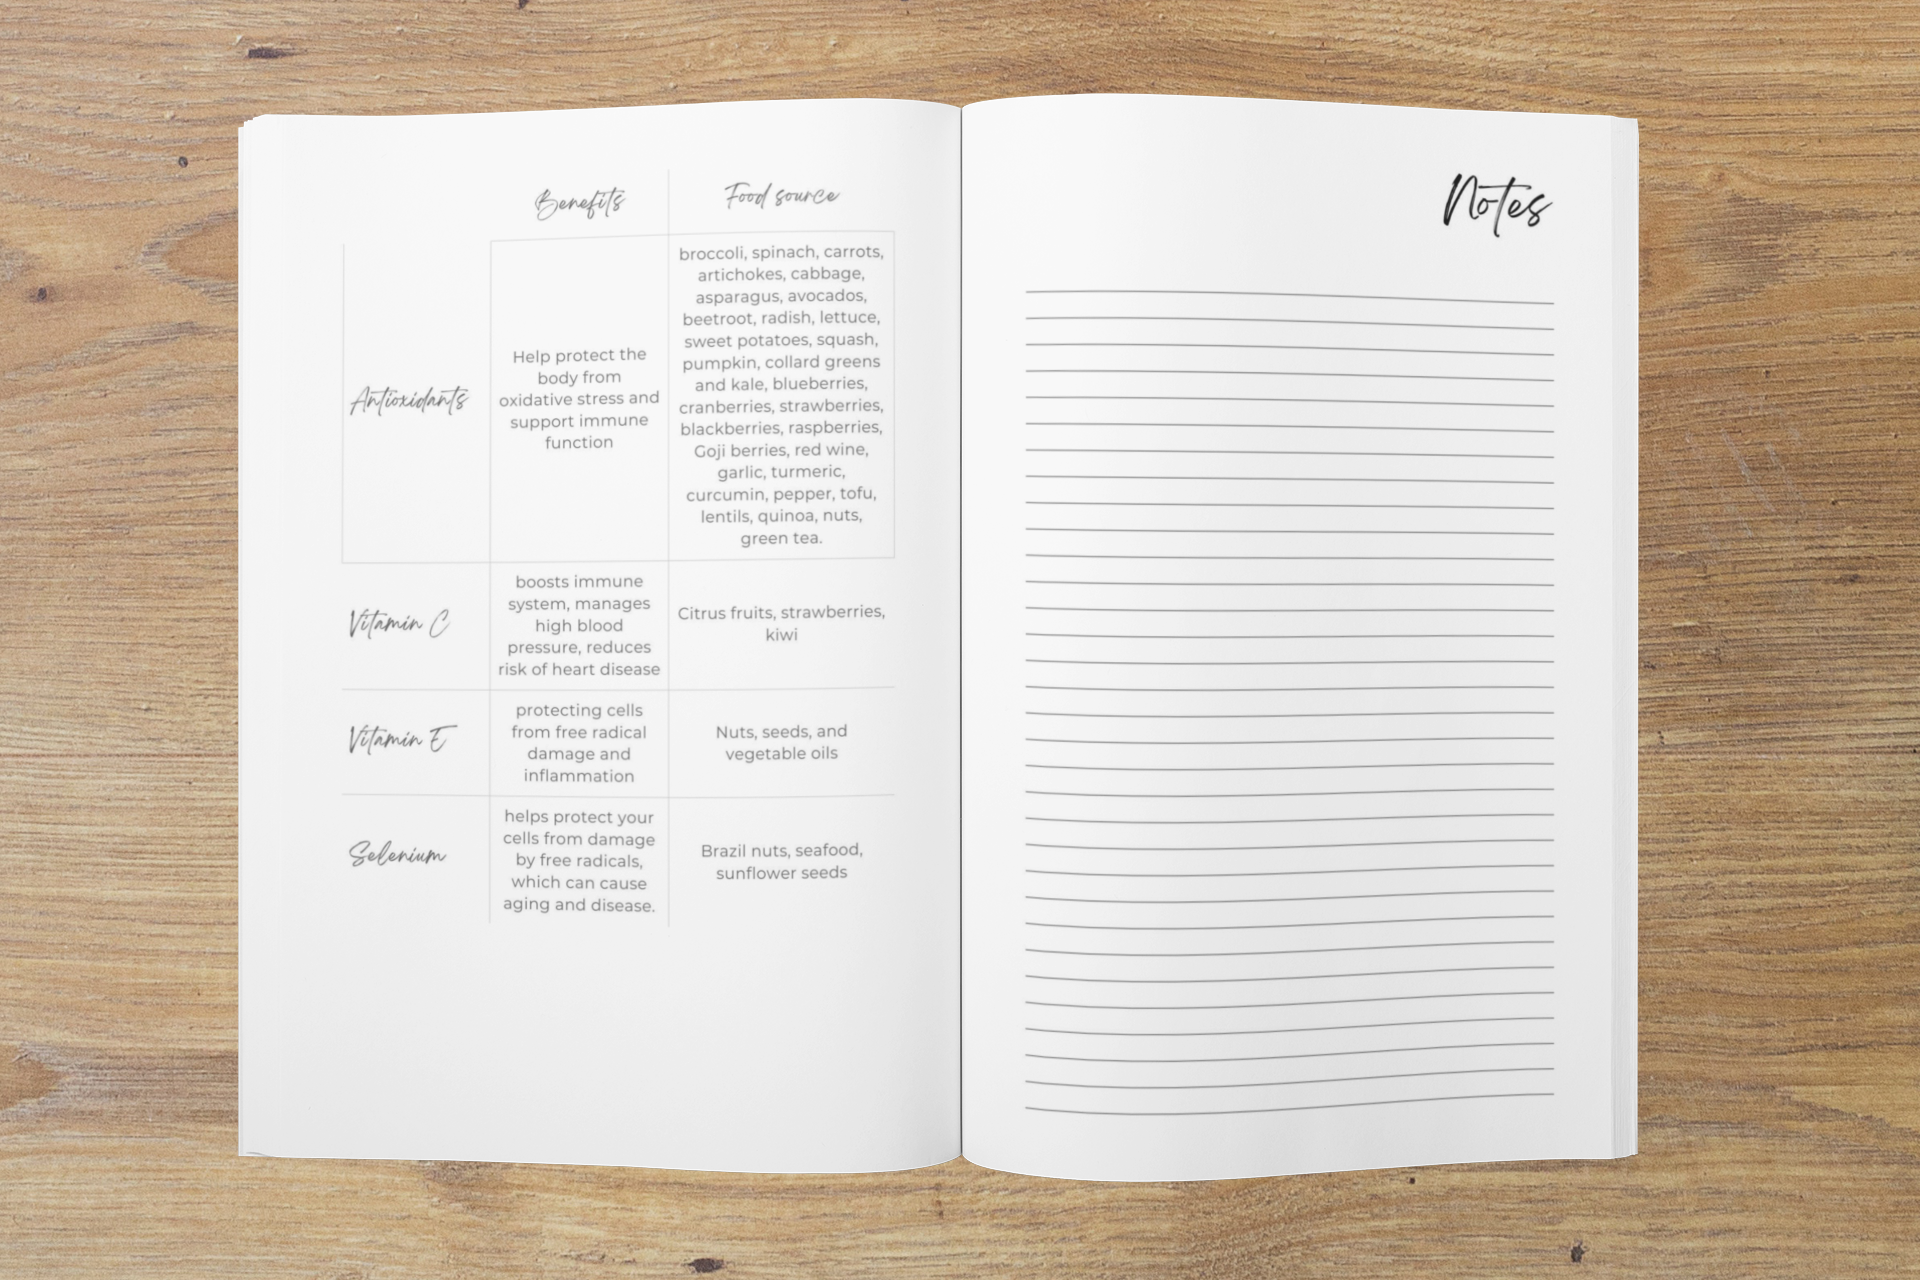 Benefits
Food source
Antioxidants
Help protect the
body from
oxidative stress and
support immune
function
broccoli, spinach, carrots,
artichokes, cabbage,
asparagus, avocados,
beetroot, radish, lettuce,
sweet potatoes, squash,
pumpkin, collard greens
and kale, blueberries,
cranberries, strawberries,
blackberries, raspberries,
Goji berries, red wine,
garlic, turmeric,
curcumin, pepper, tofu,
lentils, quinoa, nuts,
green tea.
Vitamin C
boosts immune
system, manages
high blood
pressure, reduces
risk of heart disease
Citrus fruits, strawberries,
kiwi
Vitamin E
protecting cells
from free radical
damage and
inflammation
Nuts, seeds, and
vegetable oils
Selenium
helps protect your
cells from damage
by free radicals,
which can cause
aging and disease.
Brazil nuts, seafood,
sunflower seeds
Notes